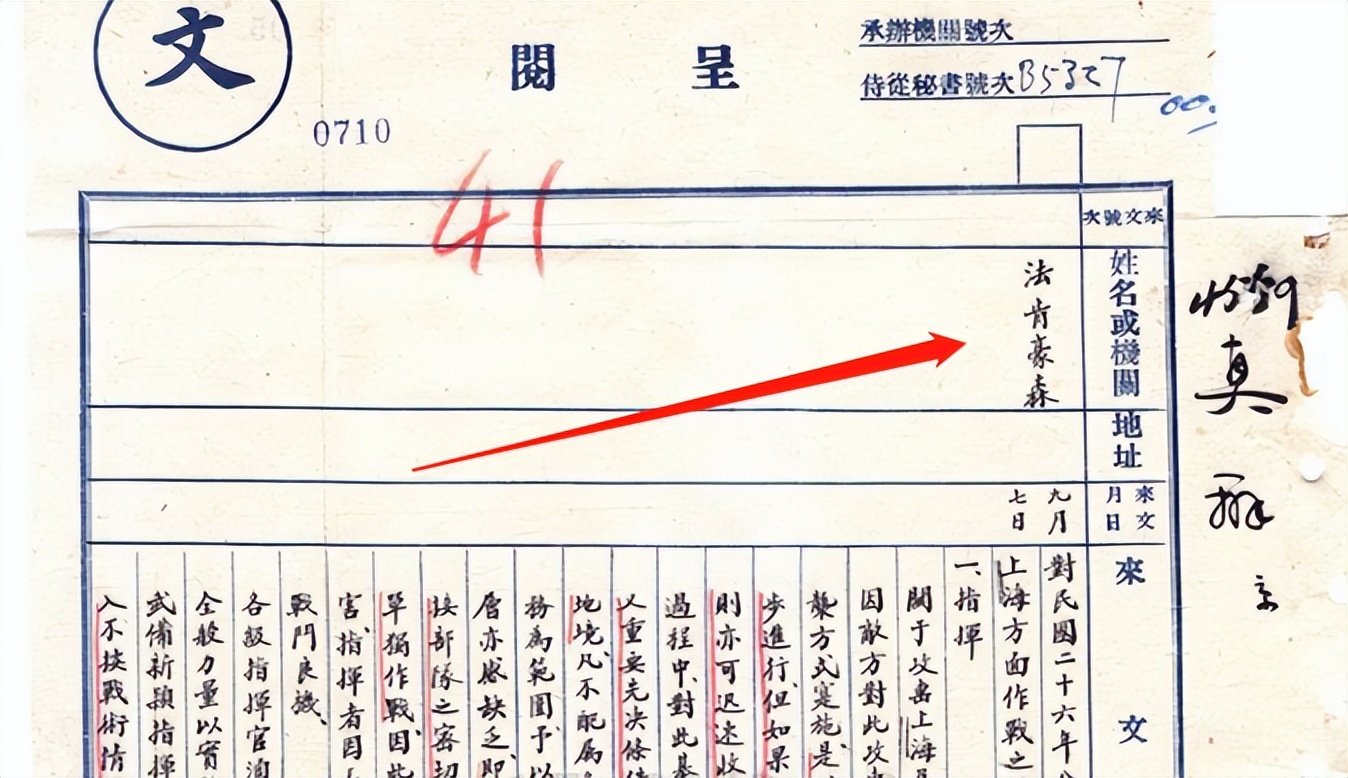 文
呈閱
承辦機關號次
侍從秘書號次 B5327
0710
41
來文號次
姓名或機關
法肯豪森
地址
來文月日
九月
七日
來文
對民國二十六年
上海方面作戰之
一、指揮
關于攻畧上海
因敵方對此攻
襲方式寔施、是
步進行、但如果
則亦可迟速收
過程中、對此基
重要先决條
地境、凡不配属
務為範圍予以
層亦感缺乏、即
接部隊之密切
單獨作戰、因此
官、指揮者因
戰鬥良機、
各級指揮官
全般力量以實
武備新穎指揮
入不 戰術情